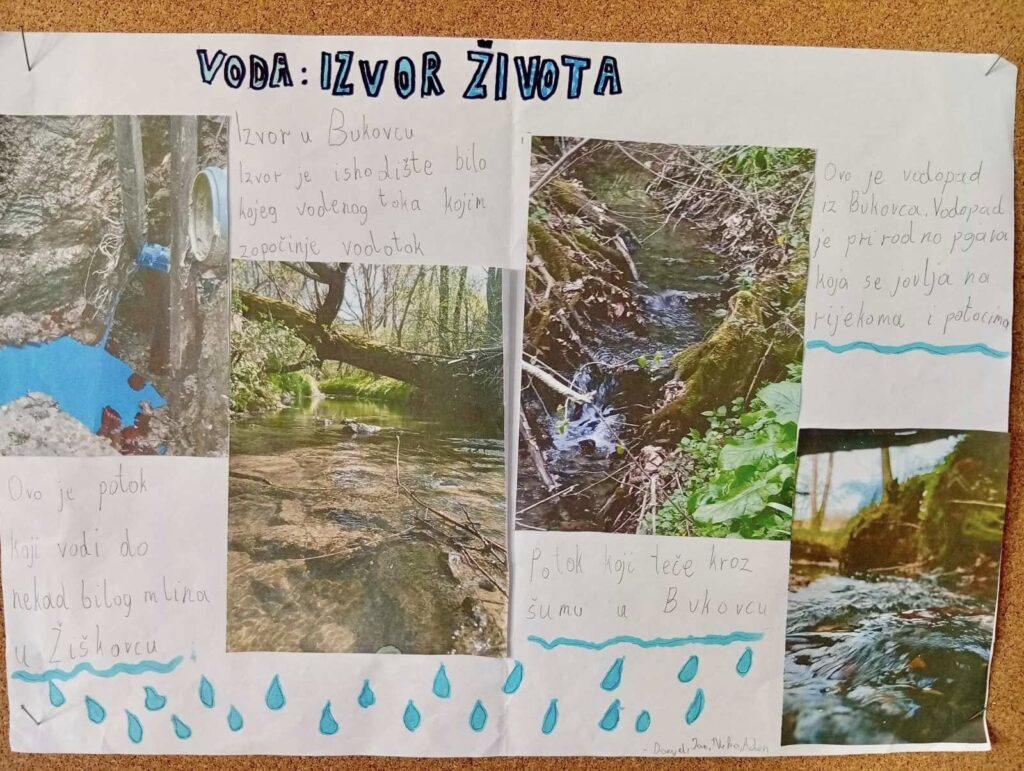 VODA: IZVOR ŽIVOTA
Izvor u Bukovcu
Izvor je ishodište bilo
kojeg vodenog toka kojim
započinje vodotok
Ovo je potok
koji vodi do
nekad bilog mlina
u Žiškovcu
Potok koji teče kroz
šumu u Bukovcu
Ovo je vodopad
iz Bukovca. Vodopad
je prirodno pojava
koja se javlja na
rijekama i potocima